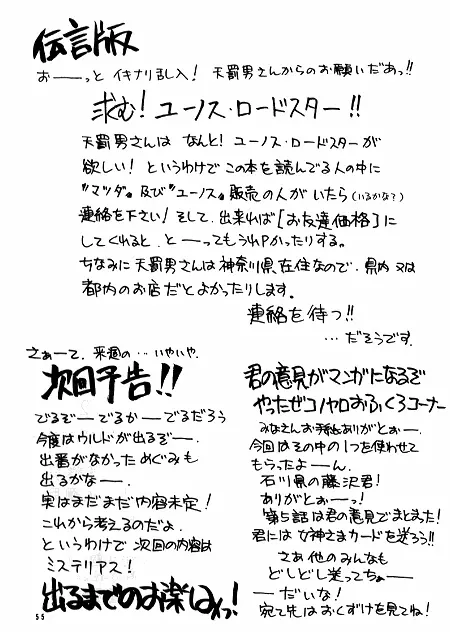 伝言版
おーーっと イキナリ乱入! 天罰男さんからのお願いだあっ!!
求む! ユーノス・ロードスター!!
天罰男さんは なんと! ユーノス・ロードスターが
欲しい! というわけで この本を読んでる人の中に
"マツダ〟及び"ユーノス〟販売の人がいたら(いるかな?)
連絡を下さい! そして、出来れば[お友達価格]に
してくれると、と――ってもうれPかったりする。
ちなみに天罰男さんは神奈川県在住なので、県内又は
都内のお店だとよかったりします。
連絡を待つ!!
…だそうです。
さぁーて、来週の…いやいや、
次回予告!!
でるぞー でるかー でるだろう
今度はウルドが出るぞー。
出番がなかっためぐみも
出るかなー。
実はまだまだ内容未定!
これから考えるのだよ。
というわけで 次回の内容は
ミステリアス!
出るまでのお楽しみっ!
55
君の意見がマンガになるぞ
やったぜコノヤロおふくろコーナー
みなさんお手紙ありがとぉー。
今回はその中の1つを使わせて
もらったよーん。
石川県の藤沢君!
ありがとぉーっ!
第5話は君の意見でまとまった!
君には女神さまカードを送ろう!!
さあ 他のみんなも
どしどし送ってちょー
―だいな!
宛て先はおくずけを見てね!